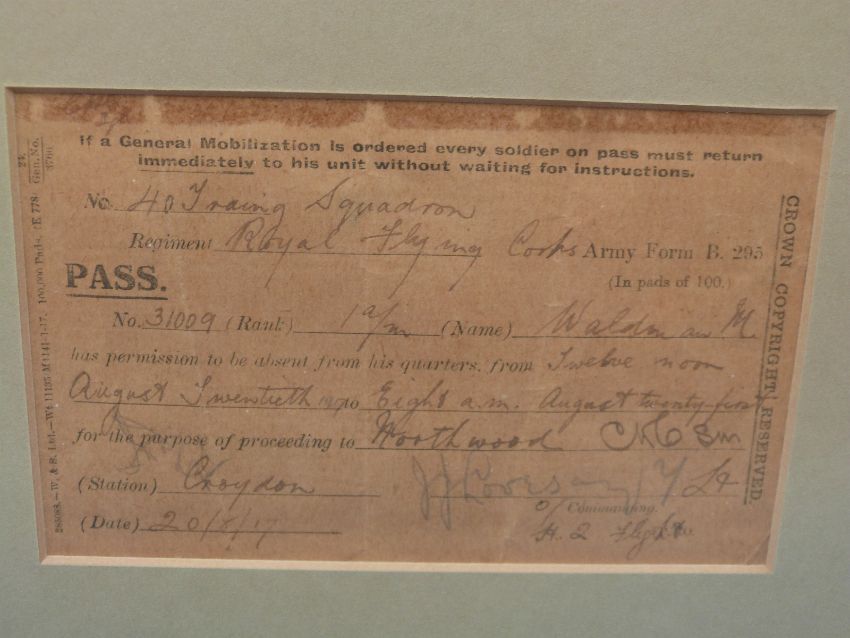 If a General Mobilization is ordered every soldier on pass must return
immediately to his unit without waiting for instructions.
No. 40 Traing Squadron
Regiment Royal Flying Corks Army Form B. 295
(In pads of 100.)
PASS.
No. 31009 (Rank) 1 a/m (Name) Waldman M.
has permission to be absent from his quarters, from Twelve noon
August Twentieth to Eight a.m. August twenty-first
for the purpose of proceeding to Northwood
(Station) Croydon
(Date) 20/8/17
Commanding.
CROWN COPYRIGHT RESERVED
24.
Gen. No.
W. & S. Ltd.—Wt 11135 M1141-1-17. 100,000 Pads. E 778